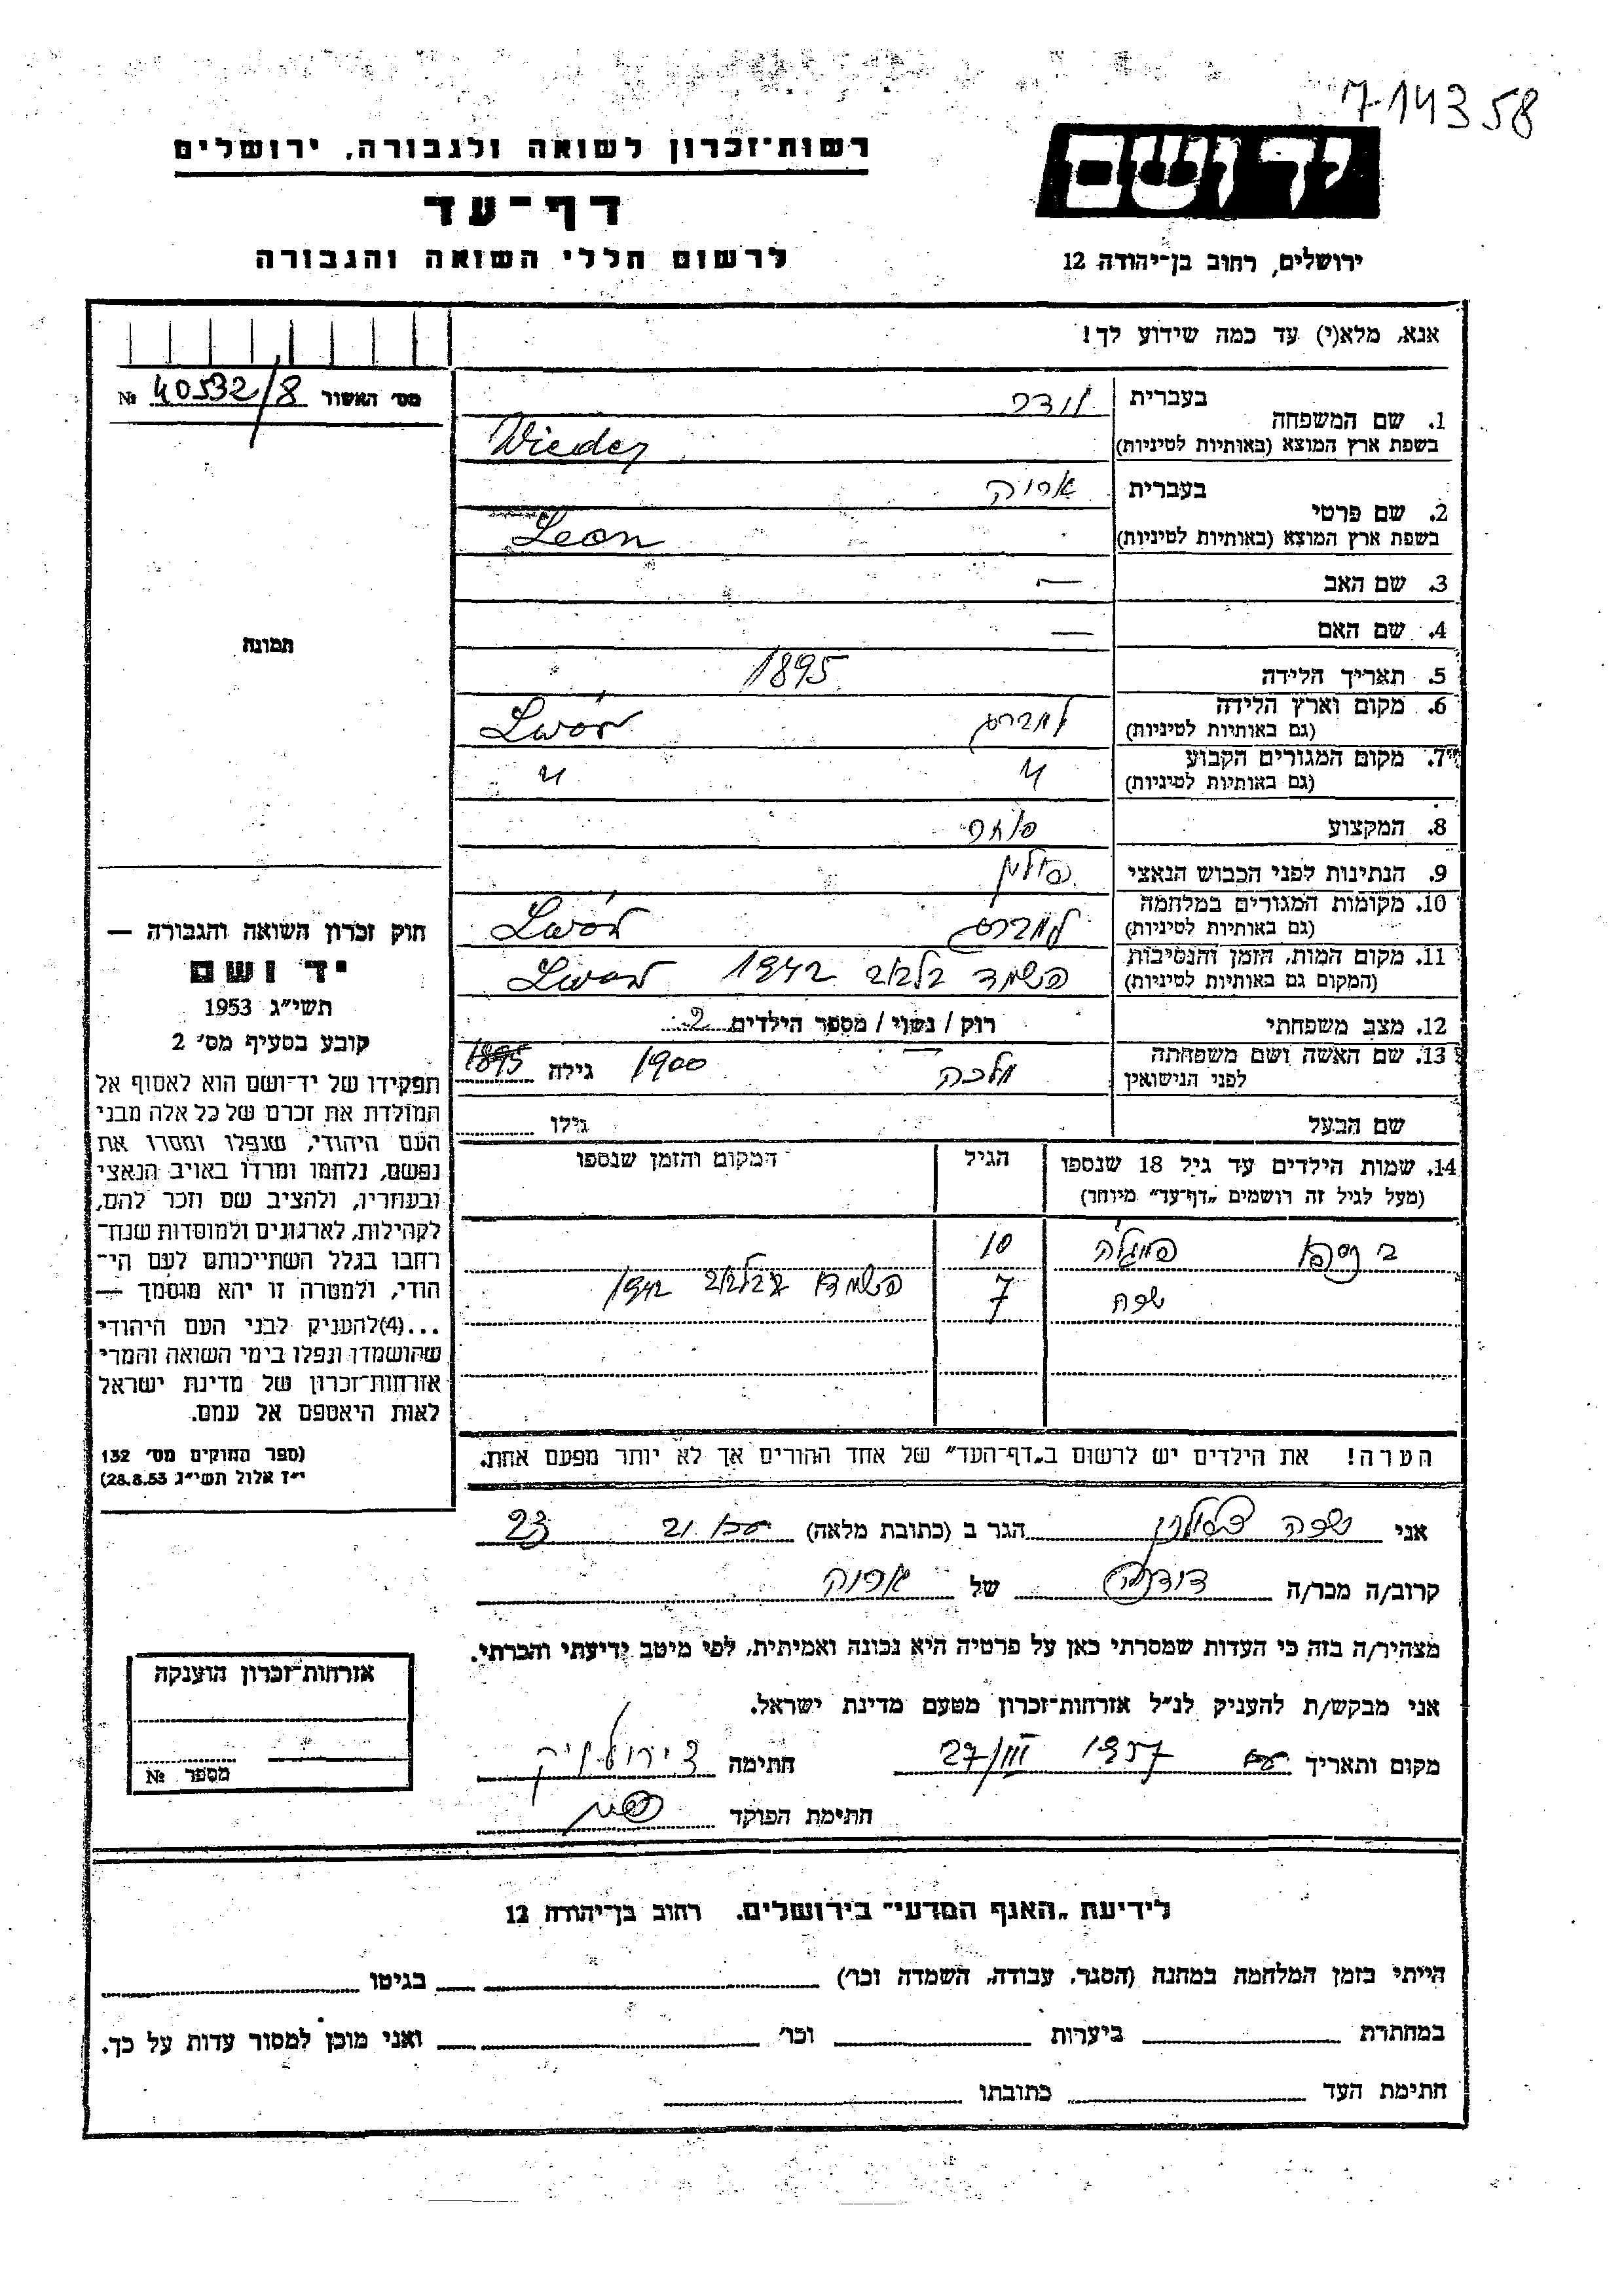 7-14358
יד ושם
רשות־זכרון לשואה ולגבורה, ירושלים
דף־עד
לרשום חללי השואה והגבורה
ירושלים, רחוב בן־יהודה 12
אנא, מלא(י) עד כמה שידוע לך!
מס׳ האשור 40532/8 №
תמונה
1. שם המשפחה
בעברית וידר
בשפת ארץ המוצא (באותיות לטיניות) Wieder
2. שם פרטי
בעברית אריה
בשפת ארץ המוצא (באותיות לטיניות) Leon
3. שם האב —
4. שם האם —
5. תאריך הלידה 1895
6. מקום וארץ הלידה
(גם באותיות לטיניות) למברג Lwów
7. מקום המגורים הקבוע
(גם באותיות לטיניות) " "
8. המקצוע סוחר
9. הנתינות לפני הכבוש הנאצי פולין
10. מקומות המגורים במלחמה
(גם באותיות לטיניות) למברג Lwów
11. מקום המות, הזמן והנסיבות
(המקום גם באותיות לטיניות) הושמד בלבוב 1942 Lwów
12. מצב משפחתי רווק / נשוי / מספר הילדים 2
13. שם האשה ושם משפחתה
לפני הנישואין מלכה 1900 גילה 1895
שם הבעל גילו
14. שמות הילדים עד גיל 18 שנספו הגיל המקום והזמן שנספו
(מעל לגיל זה רושמים „דף־עד" מיוחד)
10
7 1942
הערה! את הילדים יש לרשום ב„דף־העד" של אחד ההורים אך לא יותר מפעם אחת.
חוק זכרון השואה והגבורה —
יד ושם
תשי״ג 1953
קובע בסעיף מס׳ 2
תפקידו של יד־ושם הוא לאסוף אל
המולדת את זכרם של כל אלה מבני
העם היהודי, שנפלו ומסרו את
נפשם, נלחמו ומרדו באויב הנאצי
ובעוזריו, ולהציב שם וזכר להם,
לקהילות, לארגונים ולמוסדות שנח־
רבו בגלל השתייכותם לעם הי־
הודי, ולמטרה זו יהא מוסמך —
...(4) להעניק לבני העם היהודי
שהושמדו ונפלו בימי השואה והמרי
אזרחות־זכרון של מדינת ישראל
לאות היאספם אל עמם.
(ספר החוקים מס׳ 132
י״ז אלול תשי״ג 28.8.53)
אני הגר ב (כתובת מלאה) 21 23
קרוב/ה מכר/ה של אריה
מצהיר/ה בזה כי העדות שמסרתי כאן על פרטיה היא נכונה ואמיתית, לפי מיטב ידיעתי והכרתי.
אני מבקש/ת להעניק לנ״ל אזרחות־זכרון מטעם מדינת ישראל.
מקום ותאריך 27/III 1957 חתימה
חתימת הפוקד
אזרחות־זכרון הוענקה
מספר №
לידיעת „האגף המדעי" בירושלים, רחוב בן־יהודה 12
הייתי בזמן המלחמה במחנה (הסגר, עבודה, השמדה וכו׳) בגיטו
במחתרת ביערות וכו׳ ואני מוכן למסור עדות על כך.
חתימת העד כתובתו